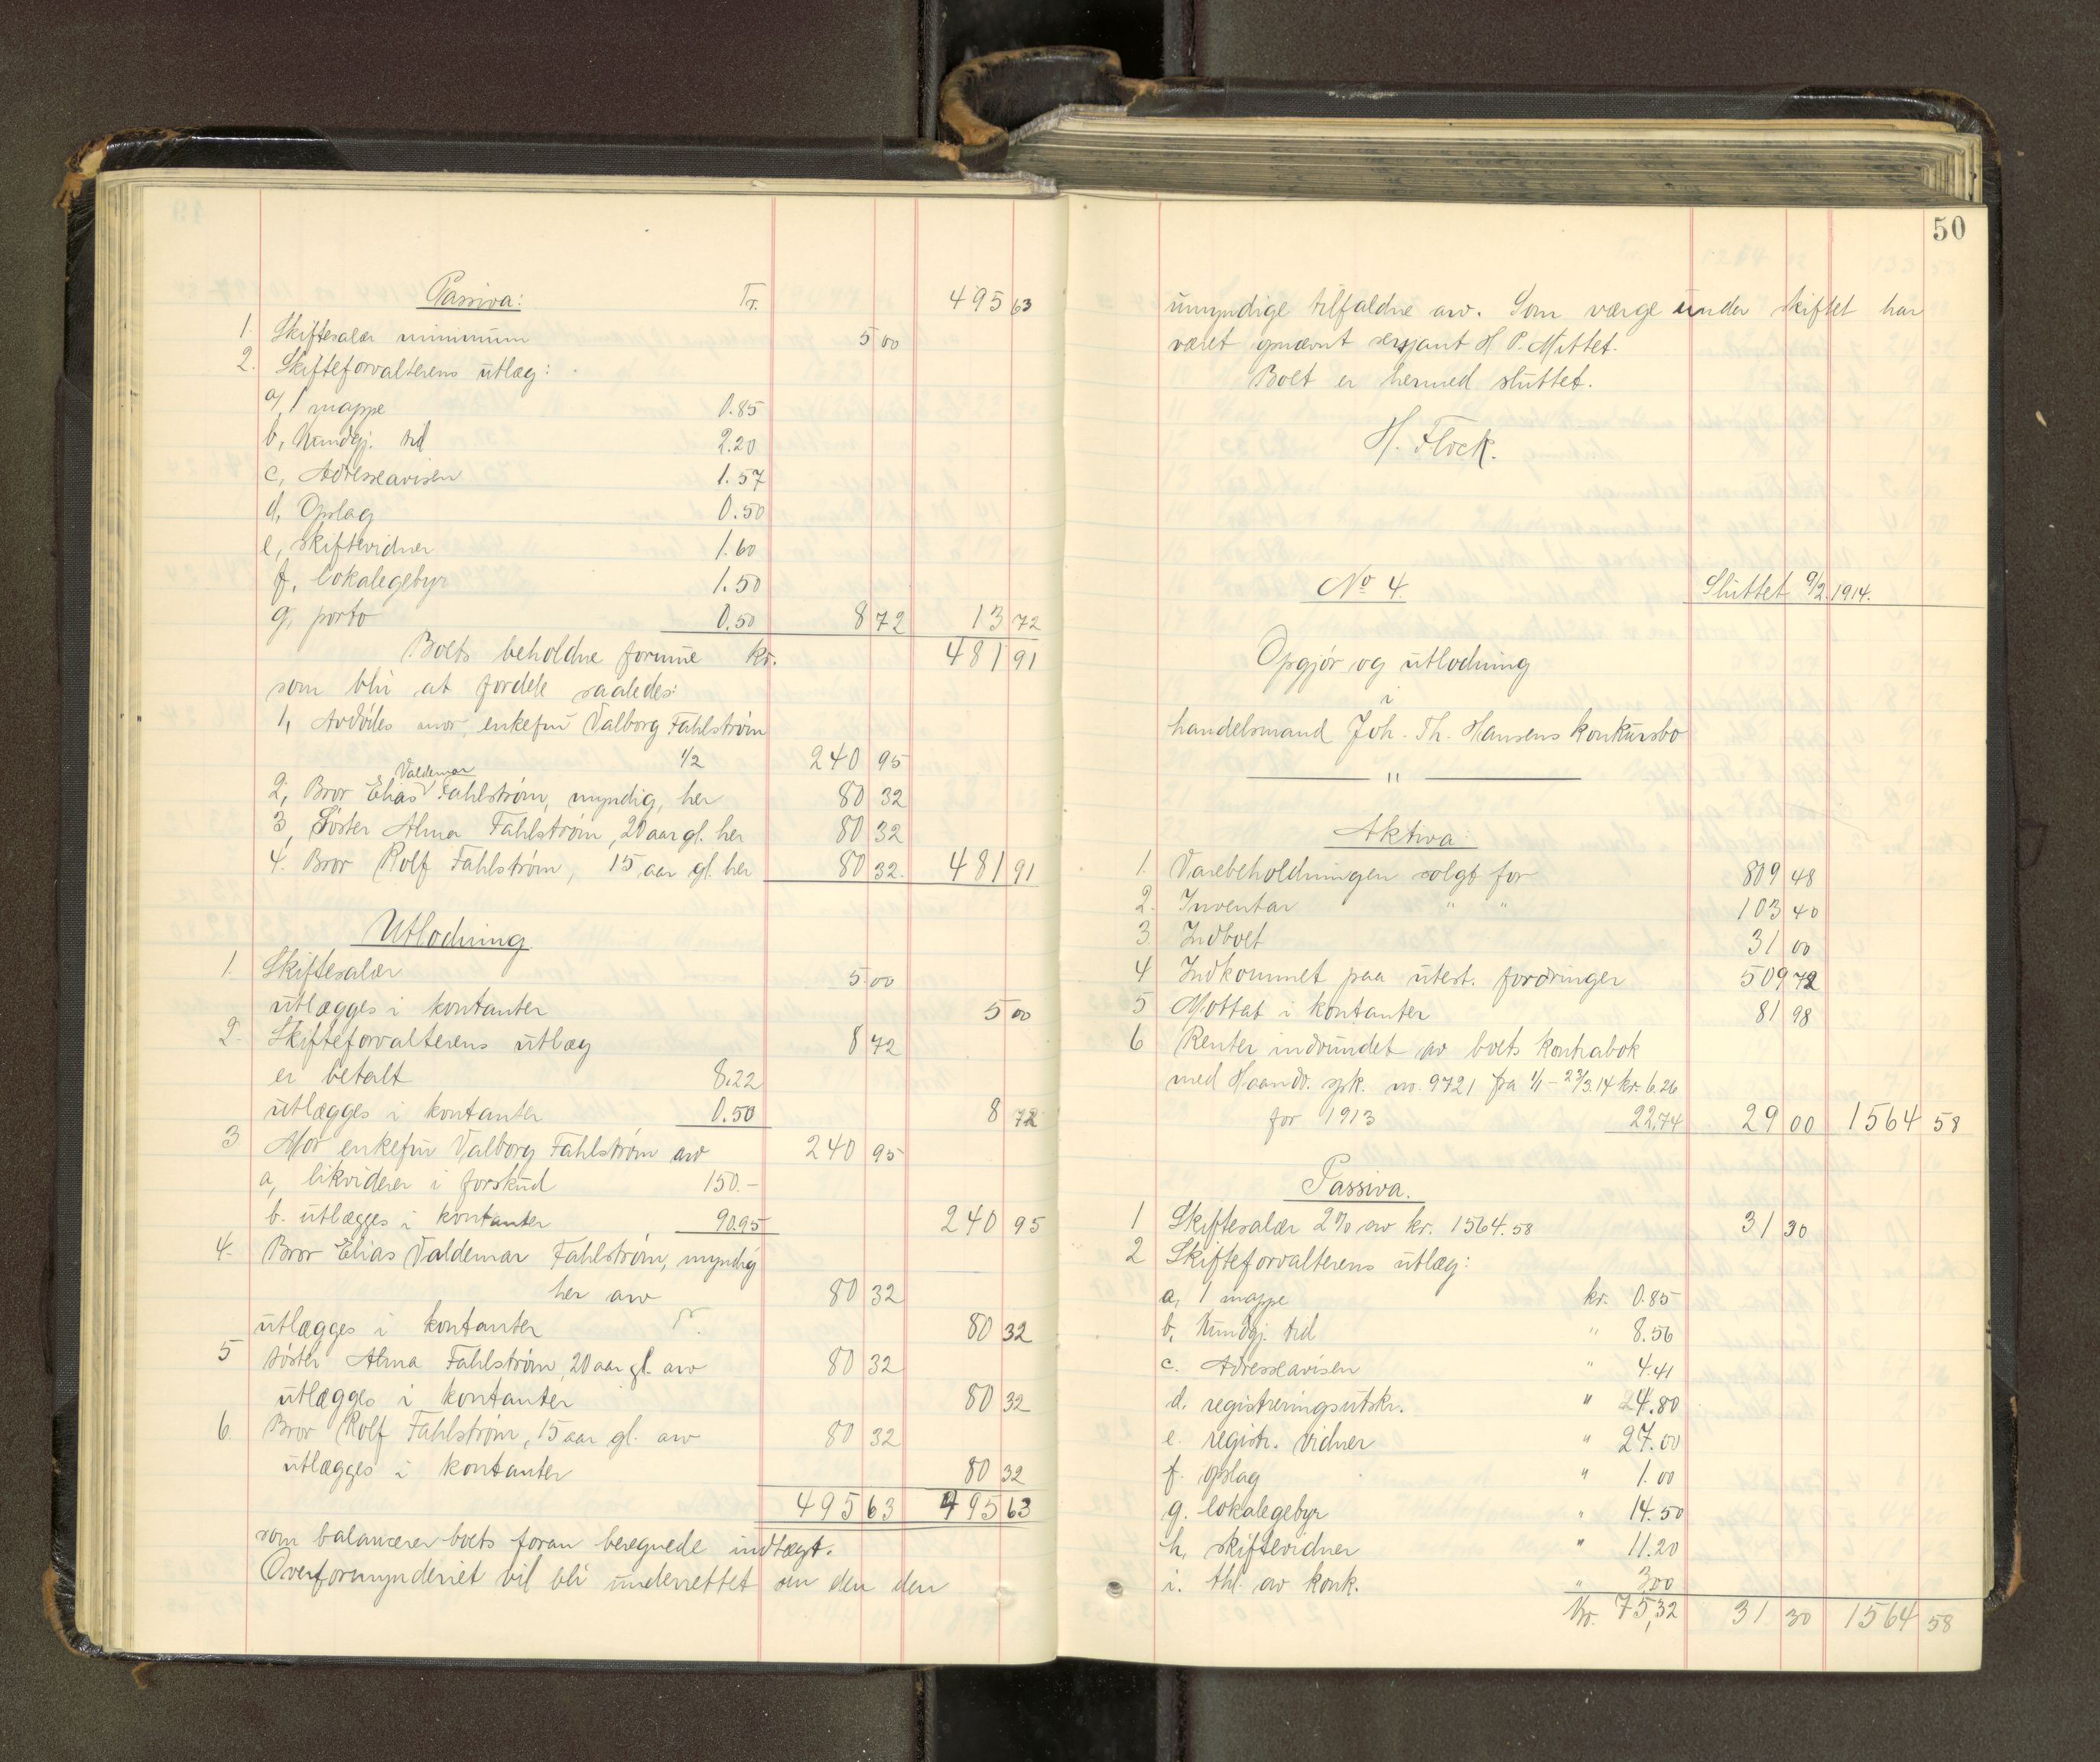 Passiva: Tr. 495 63
1. Skiftesalær minimum 5 00
2. Skifteforvalterens utlæg:
a, 1 mappe 0.85
b, kundgj. tid 2.20
c, Adresseavisen 1.57
d, Opslag 0.50
e, skiftevidner 1.60
f, lokalegebyr 1.50
g, porto 0.50 8 72 13 72
Boets beholdne formue kr. 481 91
som blir at fordele saaledes:
1, Avdødes mor, enkefru Valborg Fahlstrøm
1/2 240 95
Valdemar
2, Bror Elias Fahlstrøm, myndig, her 80 32
3, Søster Alma Fahlstrøm, 20 aar gl. her 80 32
4. Bror Rolf Fahlstrøm, 15 aar gl. her 80 32. 481 91
Utlodning
1. Skiftesalær 5 00
utlægges i kontanter 5 00
2. Skifteforvalterens utlæg 8 72
er betalt 8.22
utlægges i kontanter 0.50 8 72
3 Mor enkefru Valborg Fahlstrøm arv 240 95
a, likviderer i forskud 150.-
b. utlægges i kontanter 90.95 240 95
4. Bror Elias Valdemar Fahlstrøm, myndig
her arv 80 32
utlægges i kontanter 80 32
5 Søster Alma Fahlstrøm, 20 aar gl. arv 80 32
utlægges i kontanter 80 32
6. Bror Rolf Fahlstrøm, 15 aar gl. arv 80 32
utlægges i kontanter 80 32
495 63 495 63
som balancerer boets foran beregnede indtægt.
Overformynderiet vil bli underrettet om den den
50
umyndige tilfaldne arv. Som værge under skiftet har
været opnævnt sersjant H P. Mittet.
Boet er hermed sluttet.
H. Flock.
No 4. Sluttet 9/2. 1914.
Opgjør og utlodning
i
handelsmand Joh. Th. Hansens konkursbo
"
Aktiva:
1. Varebeholdningen solgt for 809 48
2. Inventar " " 103 40
3. Indboet 31 00
4 Indkommet paa utest. fordringer 509 72
5 Mottat i kontanter 81 98
6 Renter indvundet av boets kontrabok
med Haandv. spk. no. 9721 fra 1/1 - 23/3.14 kr. 6.26
for 1913 22,74 29 00 1564 58
Passiva.
1 Skiftesalær 2% av kr. 1564.58 31 30
2 Skifteforvalterens utlæg:
a, 1 mappe kr. 0.85
b, kundgj. tid " 8.56
c. Adresseavisen " 4.41
d. registreringsutskr. " 24.80
e. registr. vidner " 27.00
f. opslag " 1.00
g. lokalegebyr " 14.50
h, skiftevidner " 11.20
i. thl. av konk. " 3.00
Tr. 75,32 31 30 1564 58